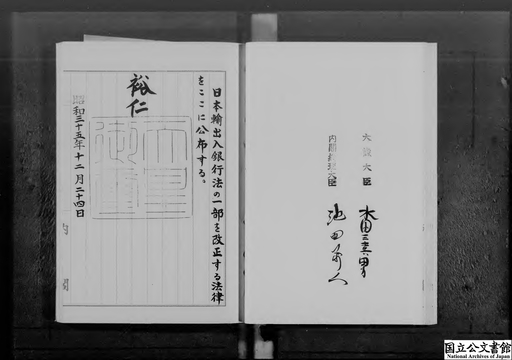 日本輸出入銀行法の一部を改正する法律
をここに公布する。
裕仁
天皇
御璽
昭和三十五年十二月二十四日
大蔵大臣
水田三喜男
内閣総理大臣
池田勇人
国立公文書館
National Archives of Japan